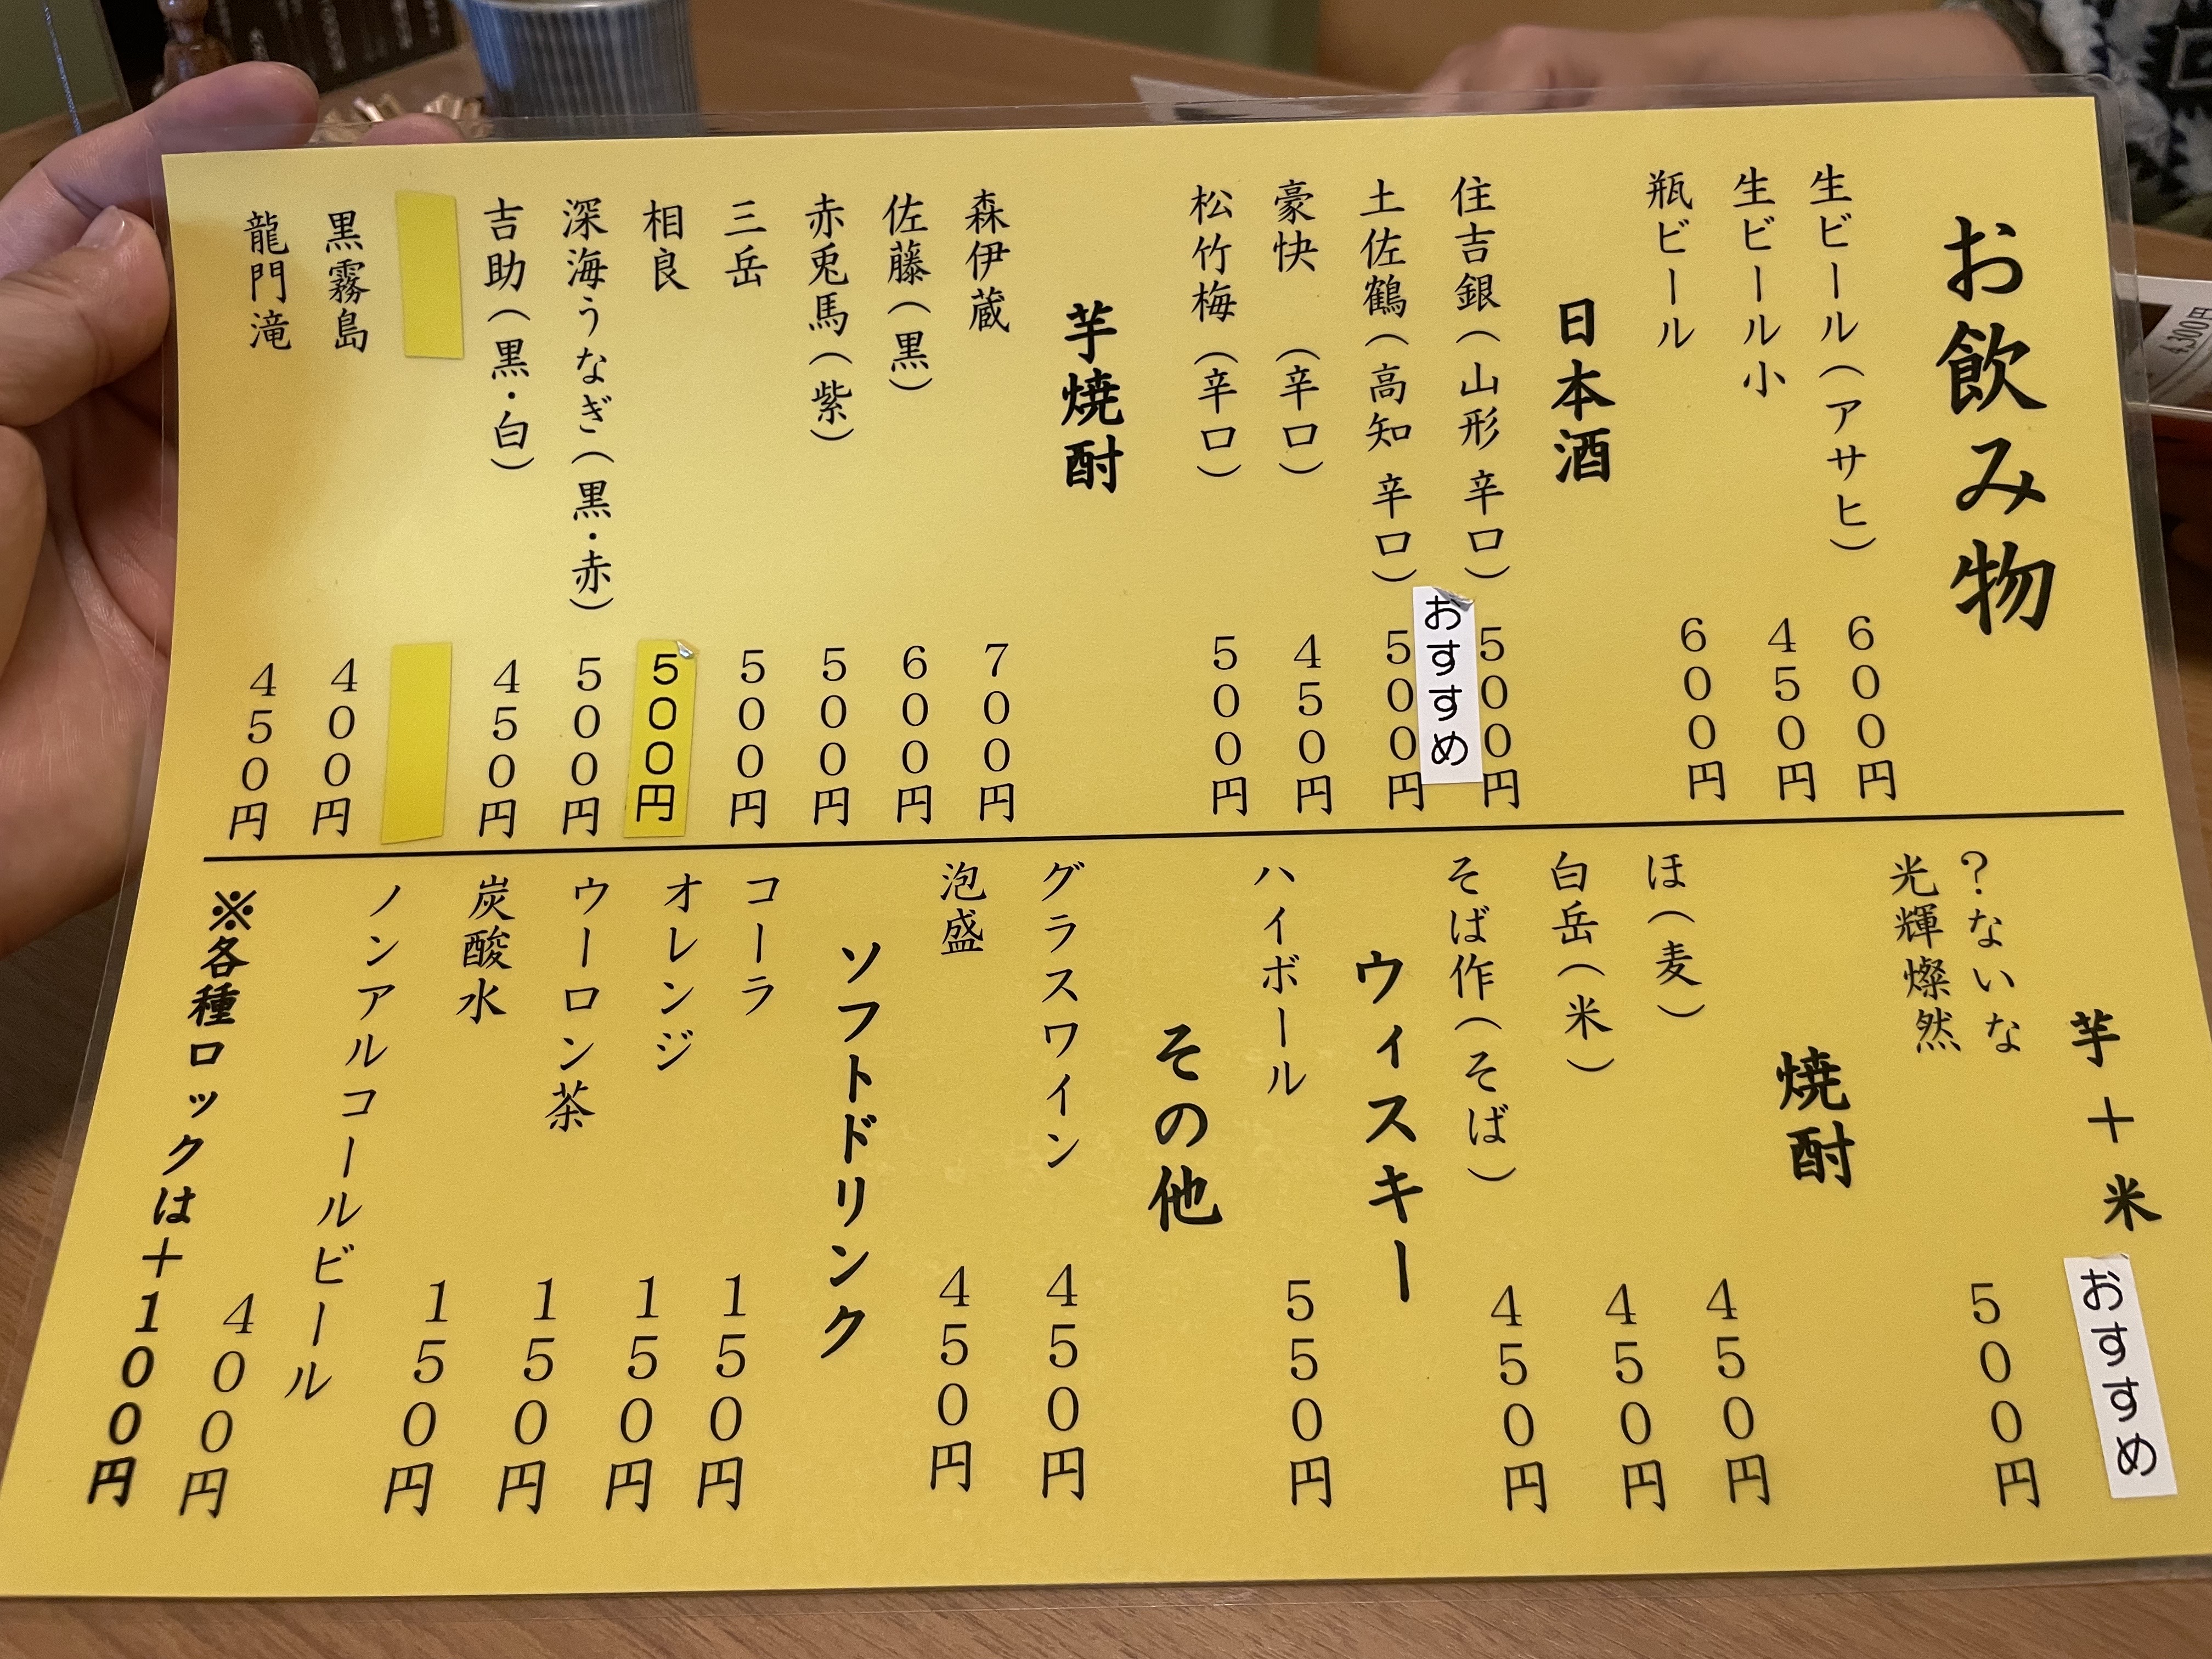 お飲み物
生ビール（アサヒ） 600円
生ビール小 450円
瓶ビール 600円
日本酒
住吉銀（山形 辛口） 500円
おすすめ
土佐鶴（高知 辛口） 500円
豪快 （辛口） 450円
松竹梅（辛口） 500円
芋焼酎
森伊蔵 700円
佐藤（黒） 600円
赤兎馬（紫） 500円
三岳 500円
相良 500円
深海うなぎ（黒・赤） 500円
吉助（黒・白） 450円
黒霧島 400円
龍門滝 450円
芋＋米
おすすめ
？ないな
光輝燦然 500円
焼酎
ほ（麦） 450円
白岳（米） 450円
そば作（そば） 450円
ウィスキー
ハイボール 550円
その他
グラスワイン 450円
泡盛 450円
ソフトドリンク
コーラ 150円
オレンジ 150円
ウーロン茶 150円
炭酸水 150円
ノンアルコールビール 400円
※各種ロックは＋100円